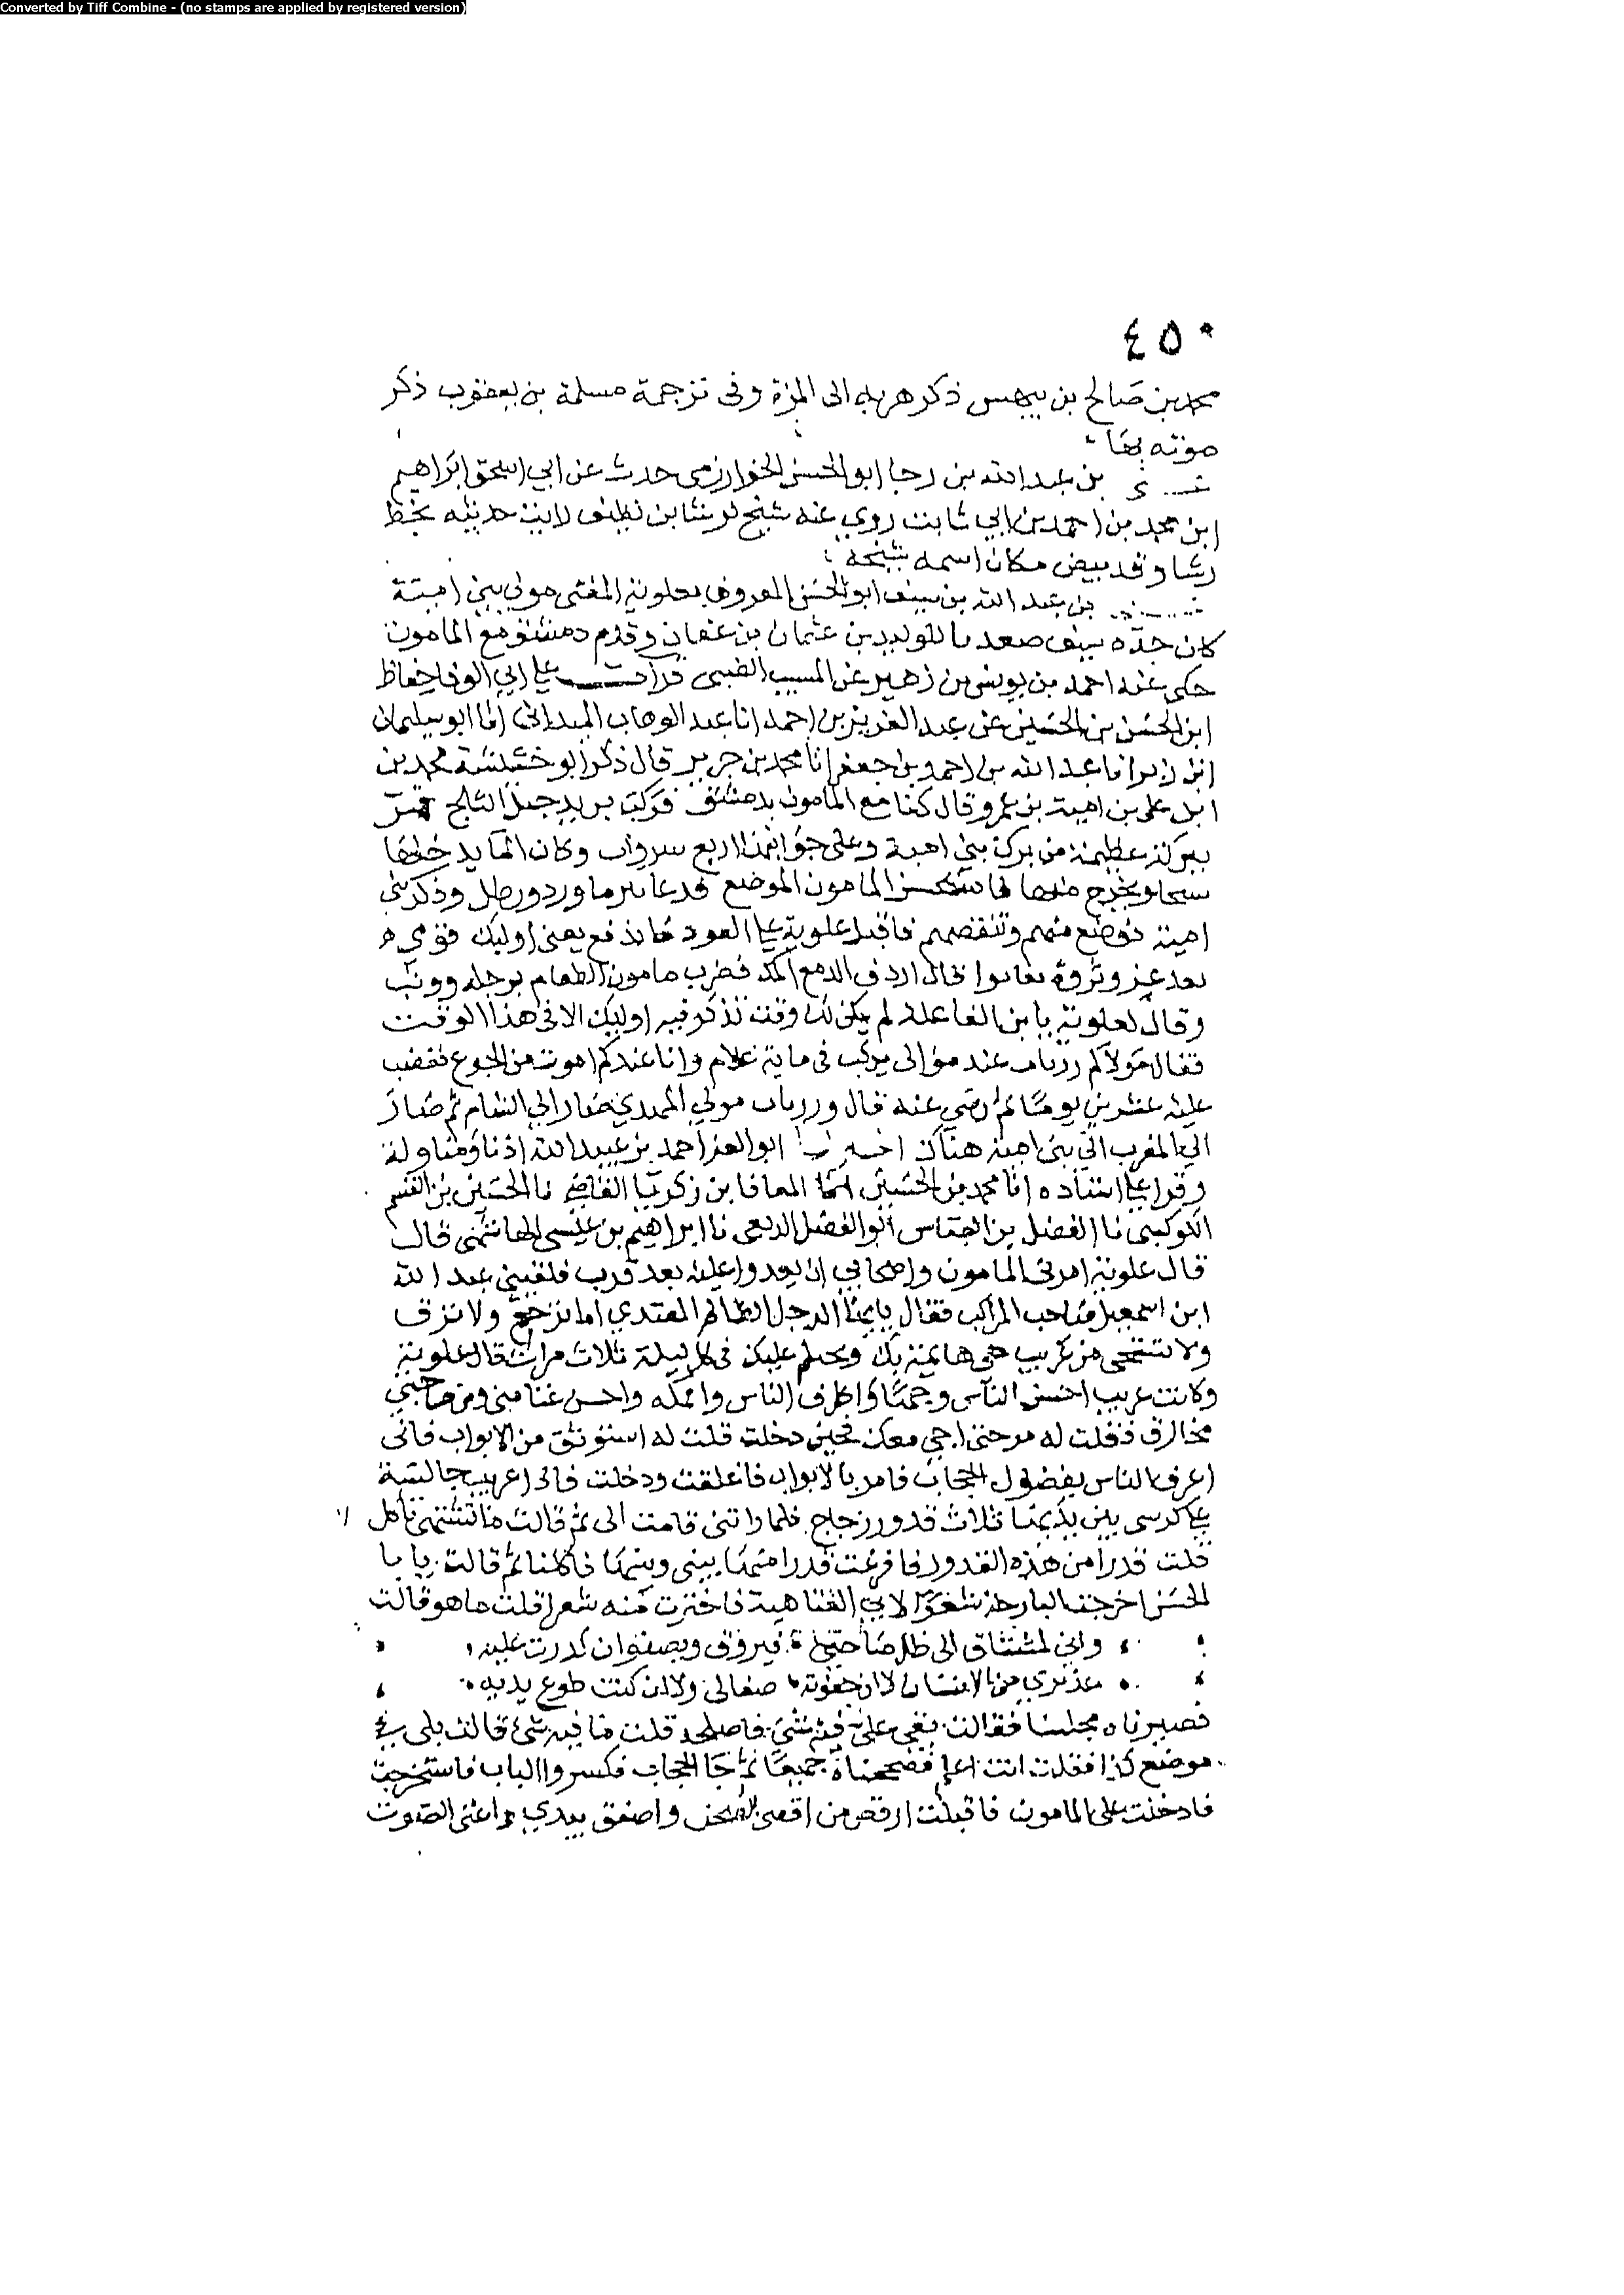 Converted by Tiff Combine - (no stamps are applied by registered version)
٤٥٠
محمد بن صالح بن بيهس ذكر هربه الى المزة وفى ترجمة مسلمة بن يعقوب ذكر
موته بها
بن عبد الله بن رجا ابو الحسن الخوارزمي حدث عن ابي اسحق ابراهيم
ابن محمد بن احمد بن ابي ثابت روي عنه شيخ لرشا بن نظيف رايت حديثه بخط
رشا وقد بيض مكان اسمه شيخه
بن عبد الله بن سيف ابو الحسن المعروف بعلوية المغني مولي بني امية
كان جده سيف صعد ما للوليد بن عثمان بن عفان وقدم دمشق مع المامون
حكى عنه احمد بن يونس بن زهير عن المسيب الضبي قرات علي ابي الوفا حفاظ
ابن الحسن بن الحسين عن عبد العزيز بن احمد انا عبد الوهاب الميداني انا ابو سليمان
ابن زبر انا عبد الله بن احمد بن جعفر انا محمد بن جرير قال ذكر ابو خشيشة محمد بن
علي بن امية بن عمرو قال كنا مع المامون بدمشق فركب يريد جبل الثلج فمر
ببركة عظيمة من برك بني امية وعلى جوانبها اربع سروات وكان الما يدخلها
سيحا ويخرج منها فاستحسن المامون الموضع فدعا ببزماورد ورطل وذكر بني
امية فوضع منهم وتنقصهم فاقبل علوية علي العود فاندفع يغني اوليك قومي
بعد عز وثروة تفانوا فالا اذرف الدمع اكمد فضرب مامون الطعام برجله ووثب
وقال لعلوية يا بن الفاعلة لم يكن لك وقت تذكر فيه اوليك الا في هذا الوقت
فقال مولاكم زرياب عند موالي يركب في ماية غلام وانا عندكم اموت من الجوع فغضب
عليه عشرين يوما ثم رضي عنه قال وزرياب مولي المهدي صار الي الشام ثم صار
الي المغرب الي بني امية هناك اخبرنا ابو العز احمد بن عبيد الله اذنا ومناولة
وقرا علي اسناده انا محمد بن الحسين انا المعافا بن زكريا القاضي نا الحسين بن القسم
الكوكبي نا الفضل بن العباس ابو الفضل الربعي نا ابراهيم بن عيسى الهاشمي قال
قال علوية امرني المامون واصحابي ان يغدوا عليه بعد قرب فلقيني عبد الله
ابن اسمعيل صاحب المراكب فقال يا ايها الرجل الظالم المعتدي اما ترحم ولا ترق
ولا تستحي من عريب هي هايمة بك وتحلم عليك في كل ليلة ثلاث مرات قال علوية
وكانت عريب احسن الناس وجها واظرف الناس واحسن غنا مني ومن صاحبي
مخارق فقلت له مر حتى اجي معك فحين دخلت قلت له استوثق من الابواب فاني
اعرف الناس بفضول الحجاب فامر بالابواب فاغلقت ودخلت فاذا عريب جالسة
علي كرسي بين يديها ثلاث قدور زجاج فلما راتني قامت الى ثم قالت ما تشتهي تاكل
قلت قدرا من هذه القدور فافرغت قدرا منها بيني وبينها فاكلنا ثم قالت يا با
الحسن اخرجت البارحة شعرا لابي العتاهية فاخترت منه شعرا قلت ما هو قالت
واني لمشتاق الى ظل صاحب يروق ويصفو ان كدرت عليه
عذيري من الانسان لا ان جفوته صفالي ولا ان كنت طوع يديه
فصيرناه مجلسنا فقالت بقي علي فيه شي فاصلحه قلت ما فيه شي قالت بلى في
موضع كذا فقلت انت اعلم فصححناه جميعا ثم جا الحجاب فكسروا الباب فاستخرجت
فادخلت على المامون فاقبلت ارقص من اقصى الصحن واصفق بيدي واغني الصوت